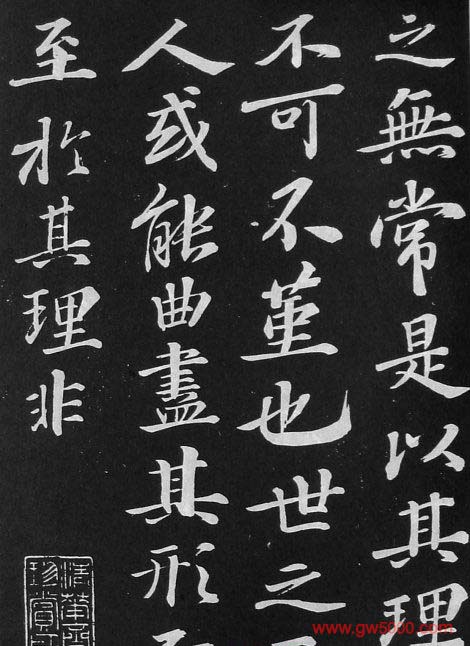 之無常是以其理
不可不堇也世之
人或能曲盡其形
至於其理非
www.gw5000.com